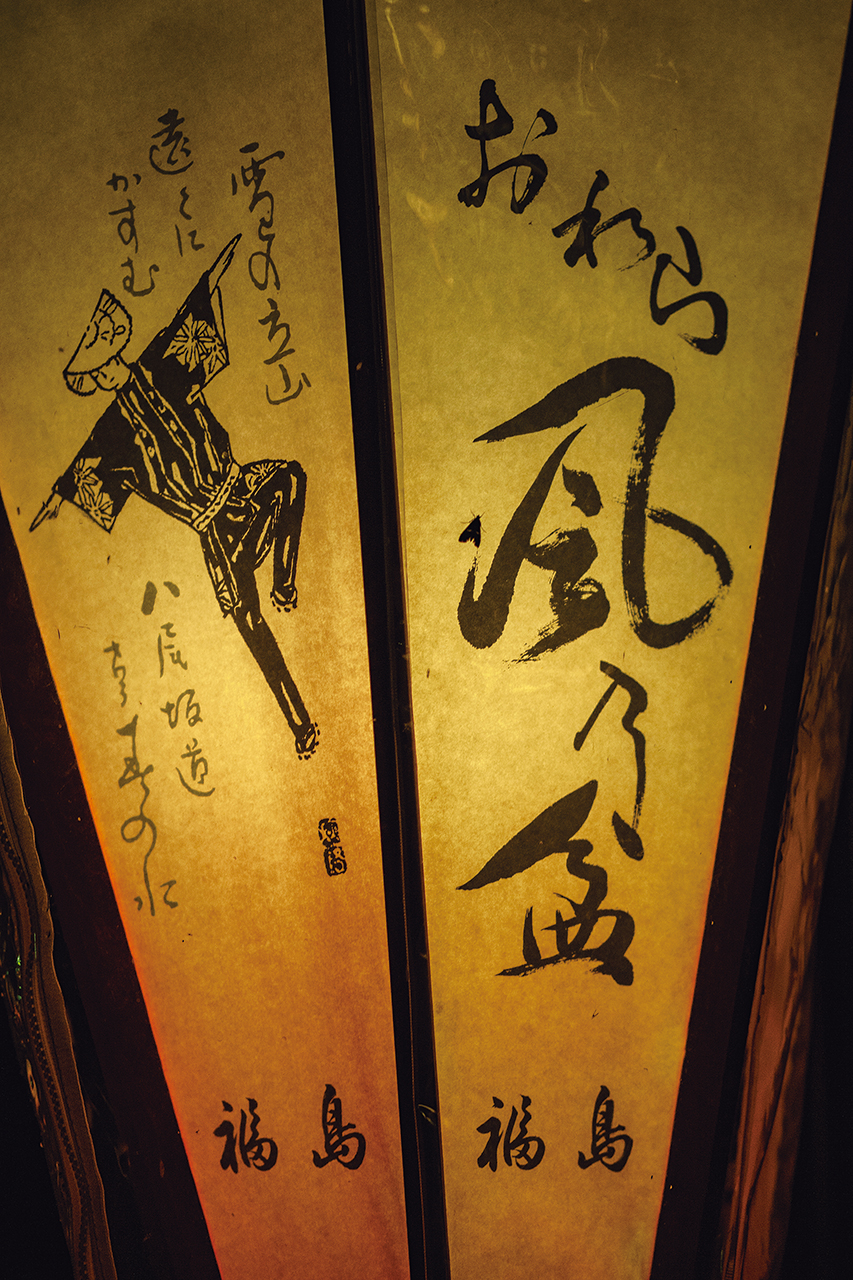 おわら
風乃盆
福島
雪の立山
遠くに
かすむ
八尾坂道
春の
福島